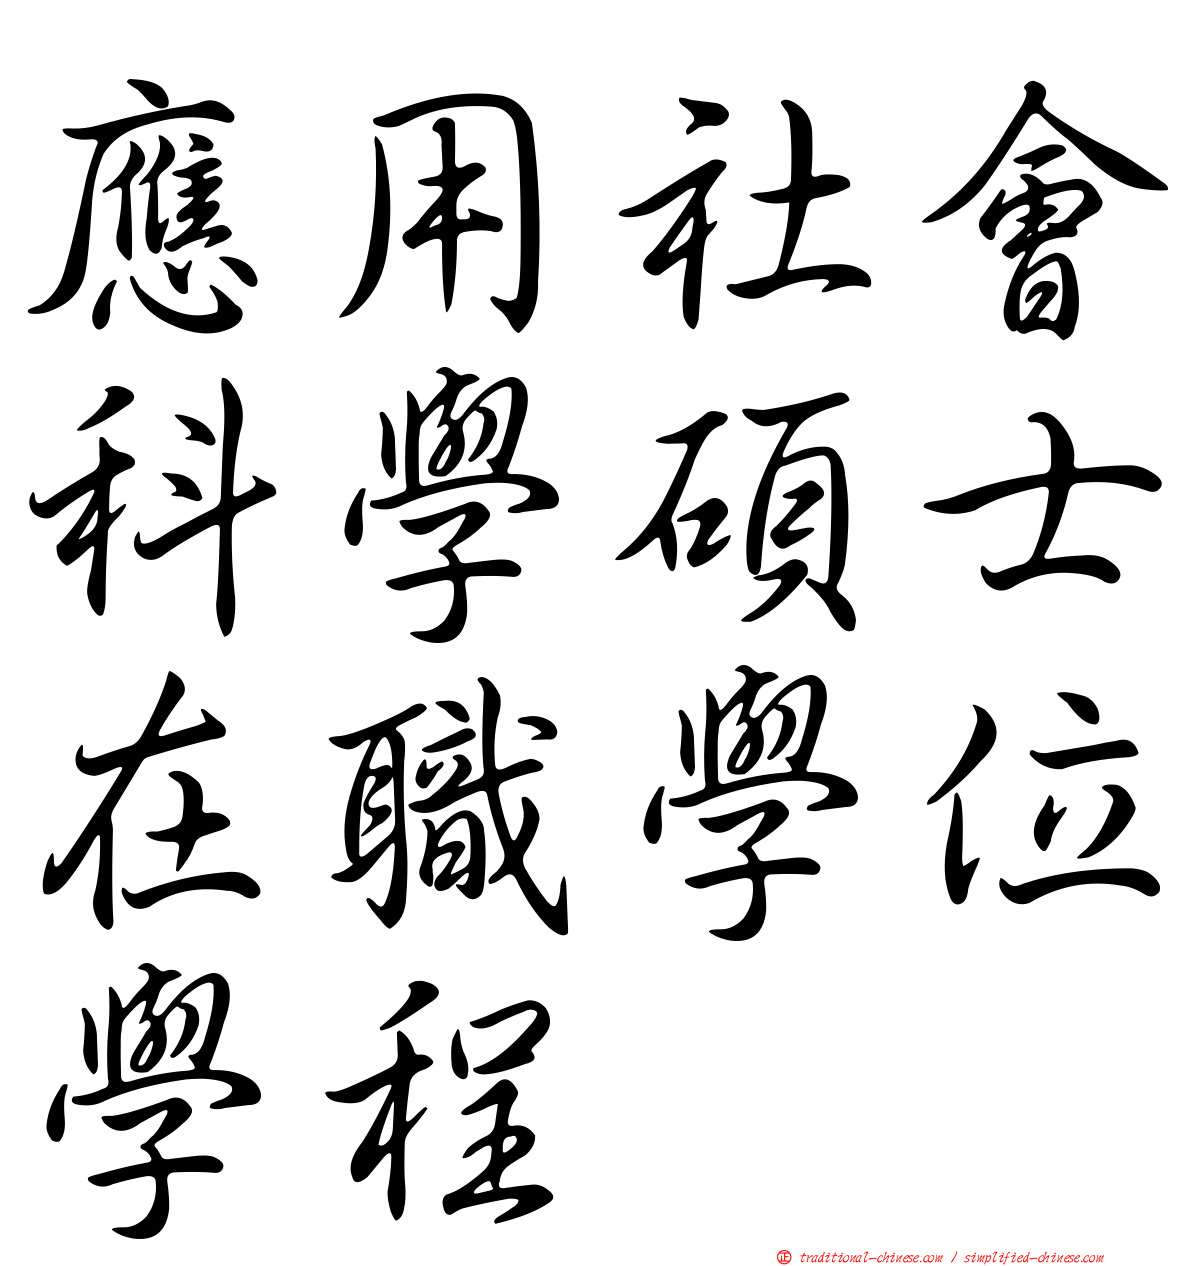 應用社會
科學碩士
在職學位
學程
㊣ traditional-chinese.com / simplified-chinese.com